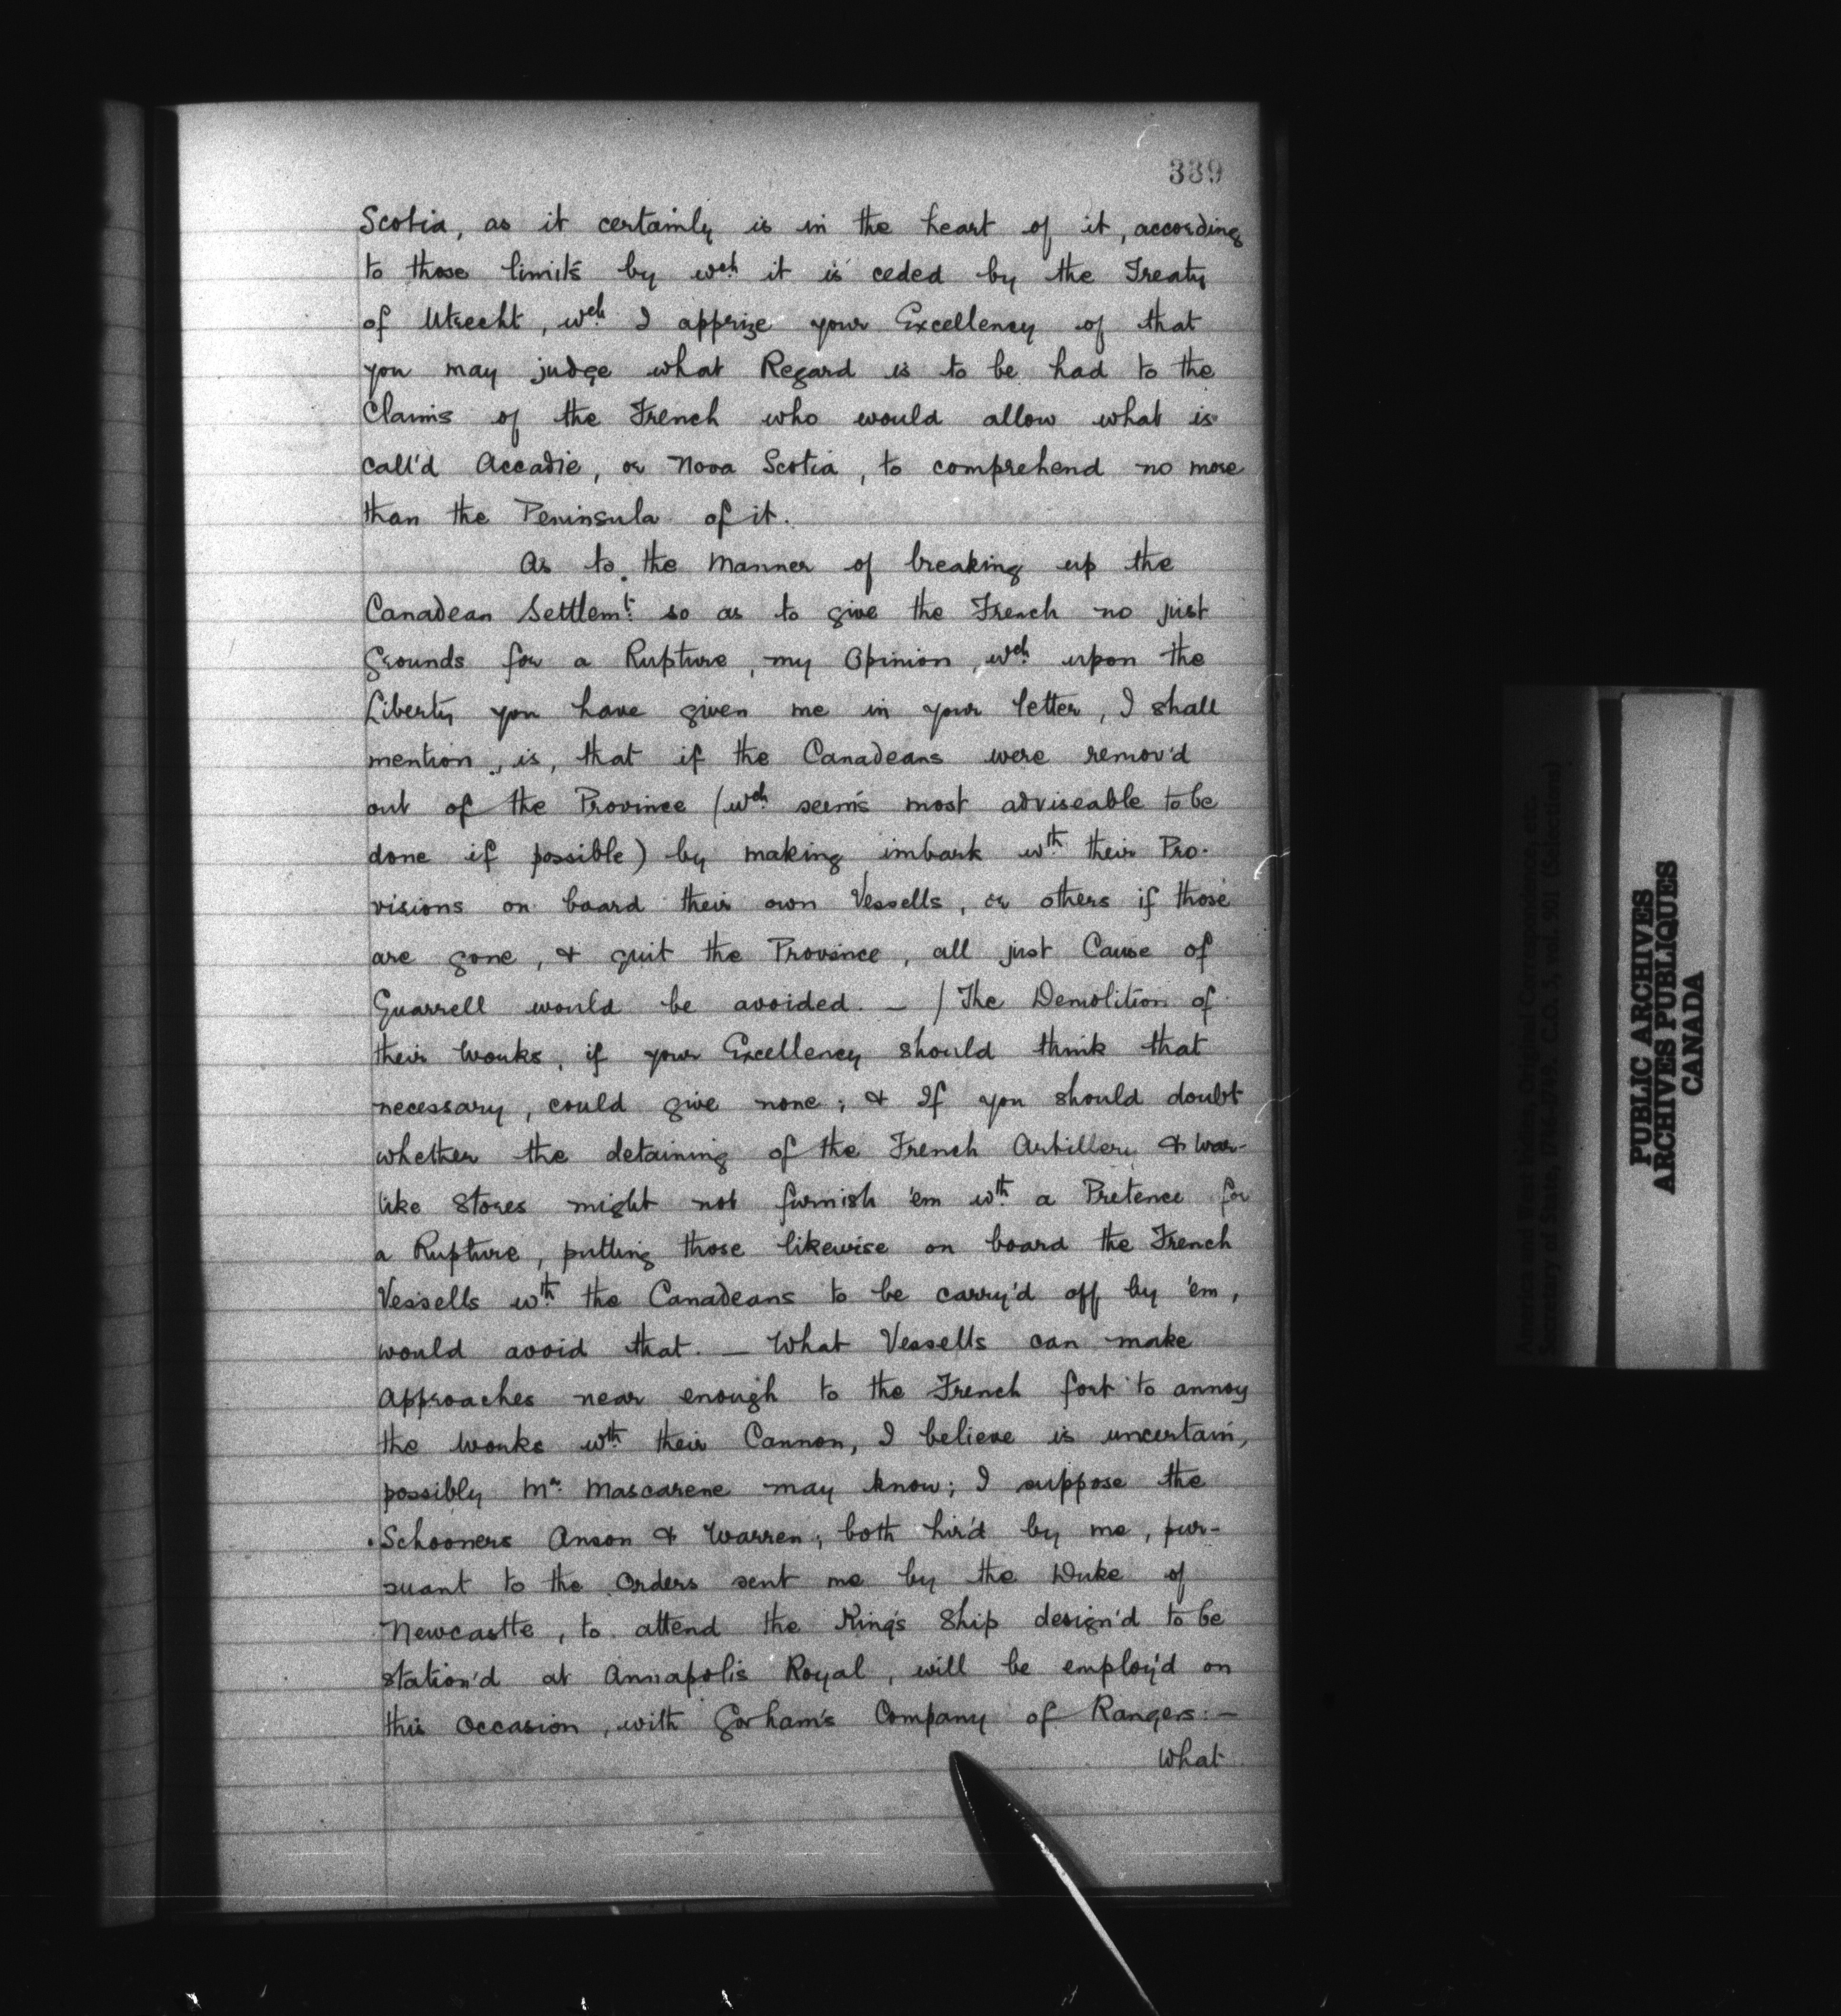 339
Scotia, as it certainly is in the heart of it, according
to those limits by wch it is ceded by the Treaty
of Utrecht, wch I apprize your Excellency of that
you may judge what Regard is to be had to the
Claims of the French who would allow what is
call'd Accadie, or Nova Scotia, to comprehend no more
than the Peninsula of it.
As to the Manner of breaking up the
Canadean Settlemt. so as to give the French no just
Grounds for a Rupture, my Opinion, wch upon the
Liberty you have given me in your letter, I shall
mention, is, that if the Canadeans were remov'd
out of the Province (wch seems most adviseable to be
done if possible) by making imbark wth their Pro-
visions on board their own Vessells, or others if those
are gone, & quit the Province, all just Cause of
Quarrell would be avoided. — / The Demolition of
their Works, if your Excellency should think that
necessary, could give none; & If you should doubt
whether the detaining of the French Artillery & War-
like Stores might not furnish 'em wth a Pretence for
a Rupture, putting those likewise on board the French
Vessells wth the Canadeans to be carry'd off by 'em,
would avoid that. — What Vessells can make
Approaches near enough to the French fort to annoy
the Works wth their Cannon, I believe is uncertain,
possibly Mr. Mascarene may know; I suppose the
Schooners Anson & Warren, both hir'd by me, pur-
suant to the Orders sent me by the Duke of
Newcastle, to attend the King's Ship design'd to be
station'd at Annapolis Royal, will be employ'd on
this Occasion, with Gorham's Company of Rangers: —
What
PUBLIC ARCHIVES
ARCHIVES PUBLIQUES
CANADA